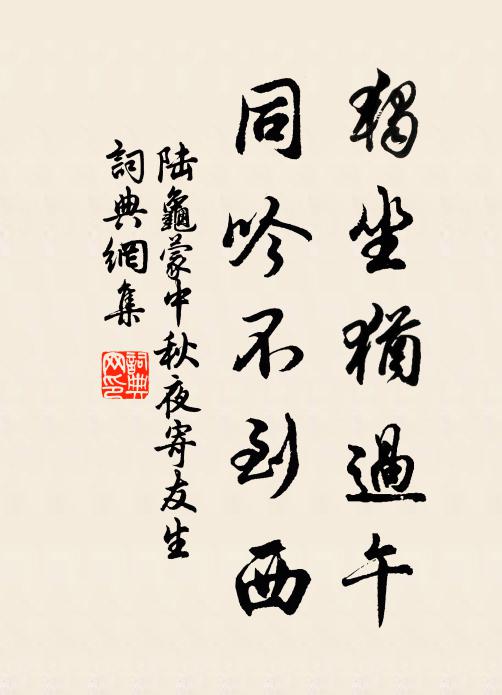 獨坐猶過午
同吟不到西
陸龜蒙中秋夜寄友生
詞典網集
詞典網印